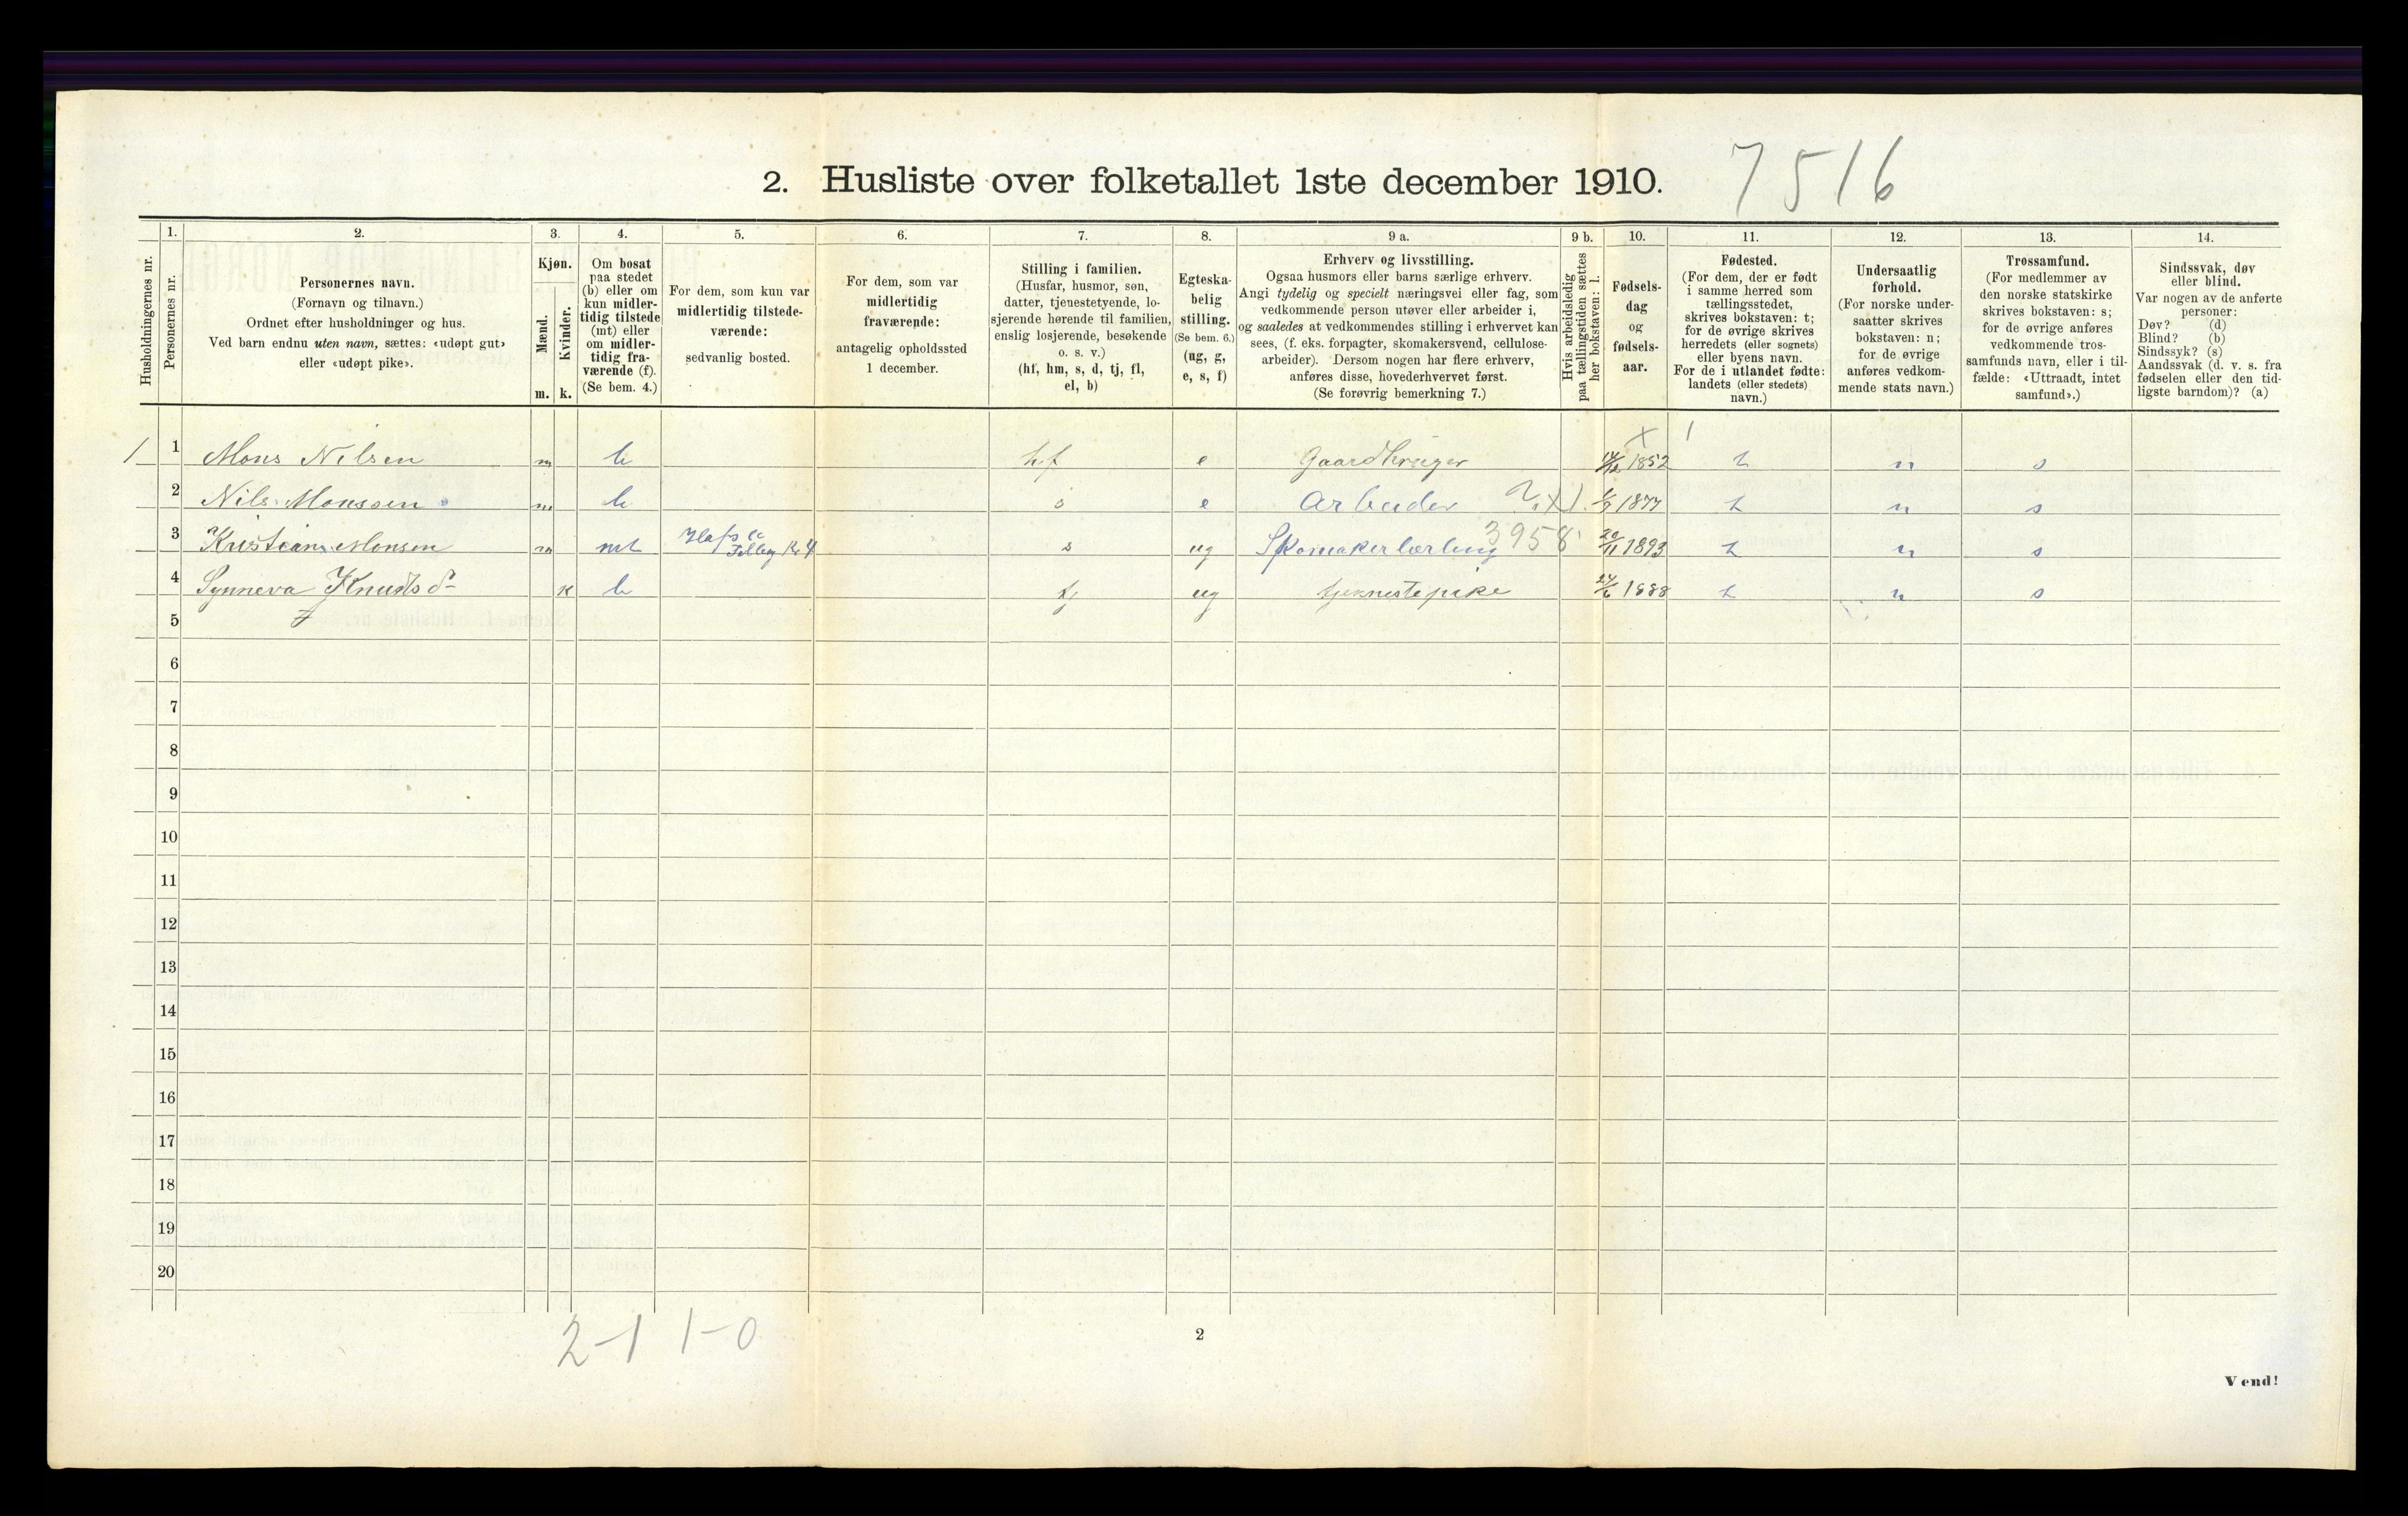 2. Husliste over folketallet 1ste december 1910. 7516
Husholdningernes nr.
1.
Personernes nr.
2.
Personernes navn.
(Fornavn og tilnavn.)
Ordnet efter husholdninger og hus.
Ved barn endnu uten navn, sættes: «udøpt gut»
eller «udøpt pike».
3.
Kjøn.
Mænd.
Kvinder.
m. k.
4.
Om bosat
paa stedet
(b) eller om
kun midler-
tidig tilstede
(mt) eller
om midler-
tidig fra-
værende (f).
(Se bem. 4.)
5.
For dem, som kun var
midlertidig tilstede-
værende:
sedvanlig bosted.
6.
For dem, som var
midlertidig
fraværende:
antagelig opholdssted
1 december.
7.
Stilling i familien.
(Husfar, husmor, søn,
datter, tjenestetyende, lo-
sjerende hørende til familien,
enslig losjerende, besøkende
o. s. v.)
(hf, hm, s, d, tj, fl,
el, b)
8.
Egteska-
belig
stilling.
(Se bem. 6.)
(ug, g,
e, s, f)
9 a.
Erhverv og livsstilling.
Ogsaa husmors eller barns særlige erhverv.
Angi tydelig og specielt næringsvei eller fag, som
vedkommende person utøver eller arbeider i,
og saaledes at vedkommendes stilling i erhvervet kan
sees, (f. eks. forpagter, skomakersvend, cellulose-
arbeider). Dersom nogen har flere erhverv,
anføres disse, hovederhvervet først.
(Se forøvrig bemerkning 7.)
9 b.
Hvis arbeidsledig
paa tællingstiden sættes
her bokstaven: l.
10.
Fødsels-
dag
og
fødsels-
aar.
11.
Fødested.
(For dem, der er født
i samme herred som
tællingsstedet,
skrives bokstaven: t;
for de øvrige skrives
herredets (eller sognets)
eller byens navn.
For de i utlandet fødte:
landets (eller stedets)
navn.)
12.
Undersaatlig
forhold.
(For norske under-
saatter skrives
bokstaven: n;
for de øvrige
anføres vedkom-
mende stats navn.)
13.
Trossamfund.
(For medlemmer av
den norske statskirke
skrives bokstaven: s;
for de øvrige anføres
vedkommende tros-
samfunds navn, eller i til-
fælde: «Uttraadt, intet
samfund».)
14.
Sindssvak, døv
eller blind.
Var nogen av de anførte
personer:
Døv? (d)
Blind? (b)
Sindssyk? (s)
Aandssvak (d. v. s. fra
fødselen eller den tid-
ligste barndom)? (a)
1 1 Mons Nilsen m b hf e Gaardbruger 1852 t n s
2 Nils Monssen m b s e Arbeider 1877 t n s
3 Kristian Monsen m mt s ug Skomakerlærling 3958 20/11 1893 t n s
4 Synneva Knutsd k b tj ug tjennestepike 24/6 1888 t n s
5
6
7
8
9
10
11
12
13
14
15
16
17
18
19
20
2-1 1-0
2
Vend!